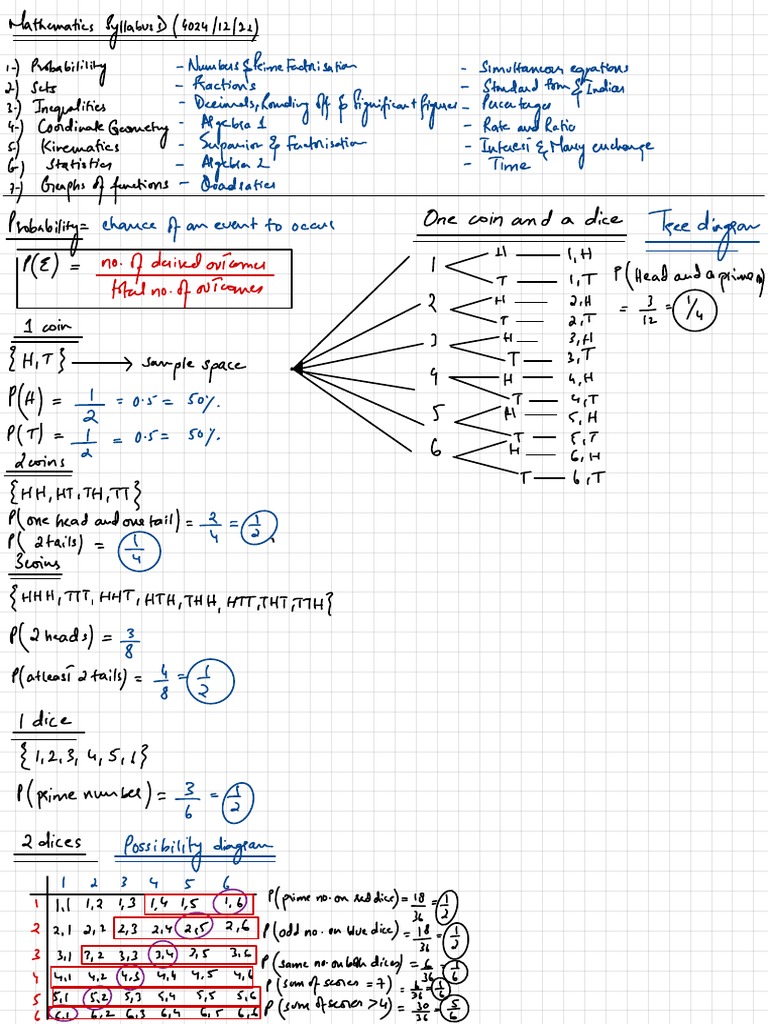 Mathematics Syllabus D (4024/12/22)
1-) Probability
2) Sets
3-) Inequalities
4-) Coordinate Geometry
5) Kinematics
6-) Statistics
7-) Graphs of functions
- Numbers & Prime Factorisation
- Fractions
- Decimals, Rounding off & Significant figures
- Algebra 1
- Expansion & Factorisation
- Algebra 2
- Quadratics
- Simultaneous equations
- Standard form & Indices
- Percentages
- Rate and Ratio
- Interest & Money exchange
- Time
Probability = chance of an event to occur
P(E) = no. of desired outcomes / total no. of outcomes
1 coin
{H,T} → sample space
P(H) = 1/2 = 0.5 = 50%.
P(T) = 1/2 = 0.5 = 50%.
2 coins
{HH, HT, TH, TT}
P(one head and one tail) = 2/4 = 1/2
P(2 tails) = 1/4
3 coins
{HHH, TTT, HHT, HTH, THH, HTT, THT, TTH}
P(2 heads) = 3/8
P(atleast 2 tails) = 4/8 = 1/2
1 dice
{1,2,3,4,5,1}
P(prime number) = 3/6 = 1/2
One coin and a dice Tree diagram
1 H 1,H
T 1,T
2 H 2,H
T 2,T
3 H 3,H
T 3,T
4 H 4,H
T 4,T
5 H 5,H
T 5,T
6 H 6,H
T 6,T
P(Head and a prime n)
= 3/12 = 1/4
2 dices Possibility diagram
1 2 3 4 5 6
1 1,1 1,2 1,3 1,4 1,5 1,6
2 2,1 2,2 2,3 2,4 2,5 2,6
3 3,1 3,2 3,3 3,4 3,5 3,6
4 4,1 4,2 4,3 4,4 4,5 4,6
5 5,1 5,2 5,3 5,4 5,5 5,6
6 6,1 6,2 6,3 6,4 6,5 6,6
P(prime no. on red dice) = 18/36 = 1/2
P(odd no. on blue dice) = 18/36 = 1/2
P(same no. on both dices) = 6/36 = 1/6
P(sum of scores = 7) = 6/36 = 1/6
P(sum of scores > 4) = 30/36 = 5/6